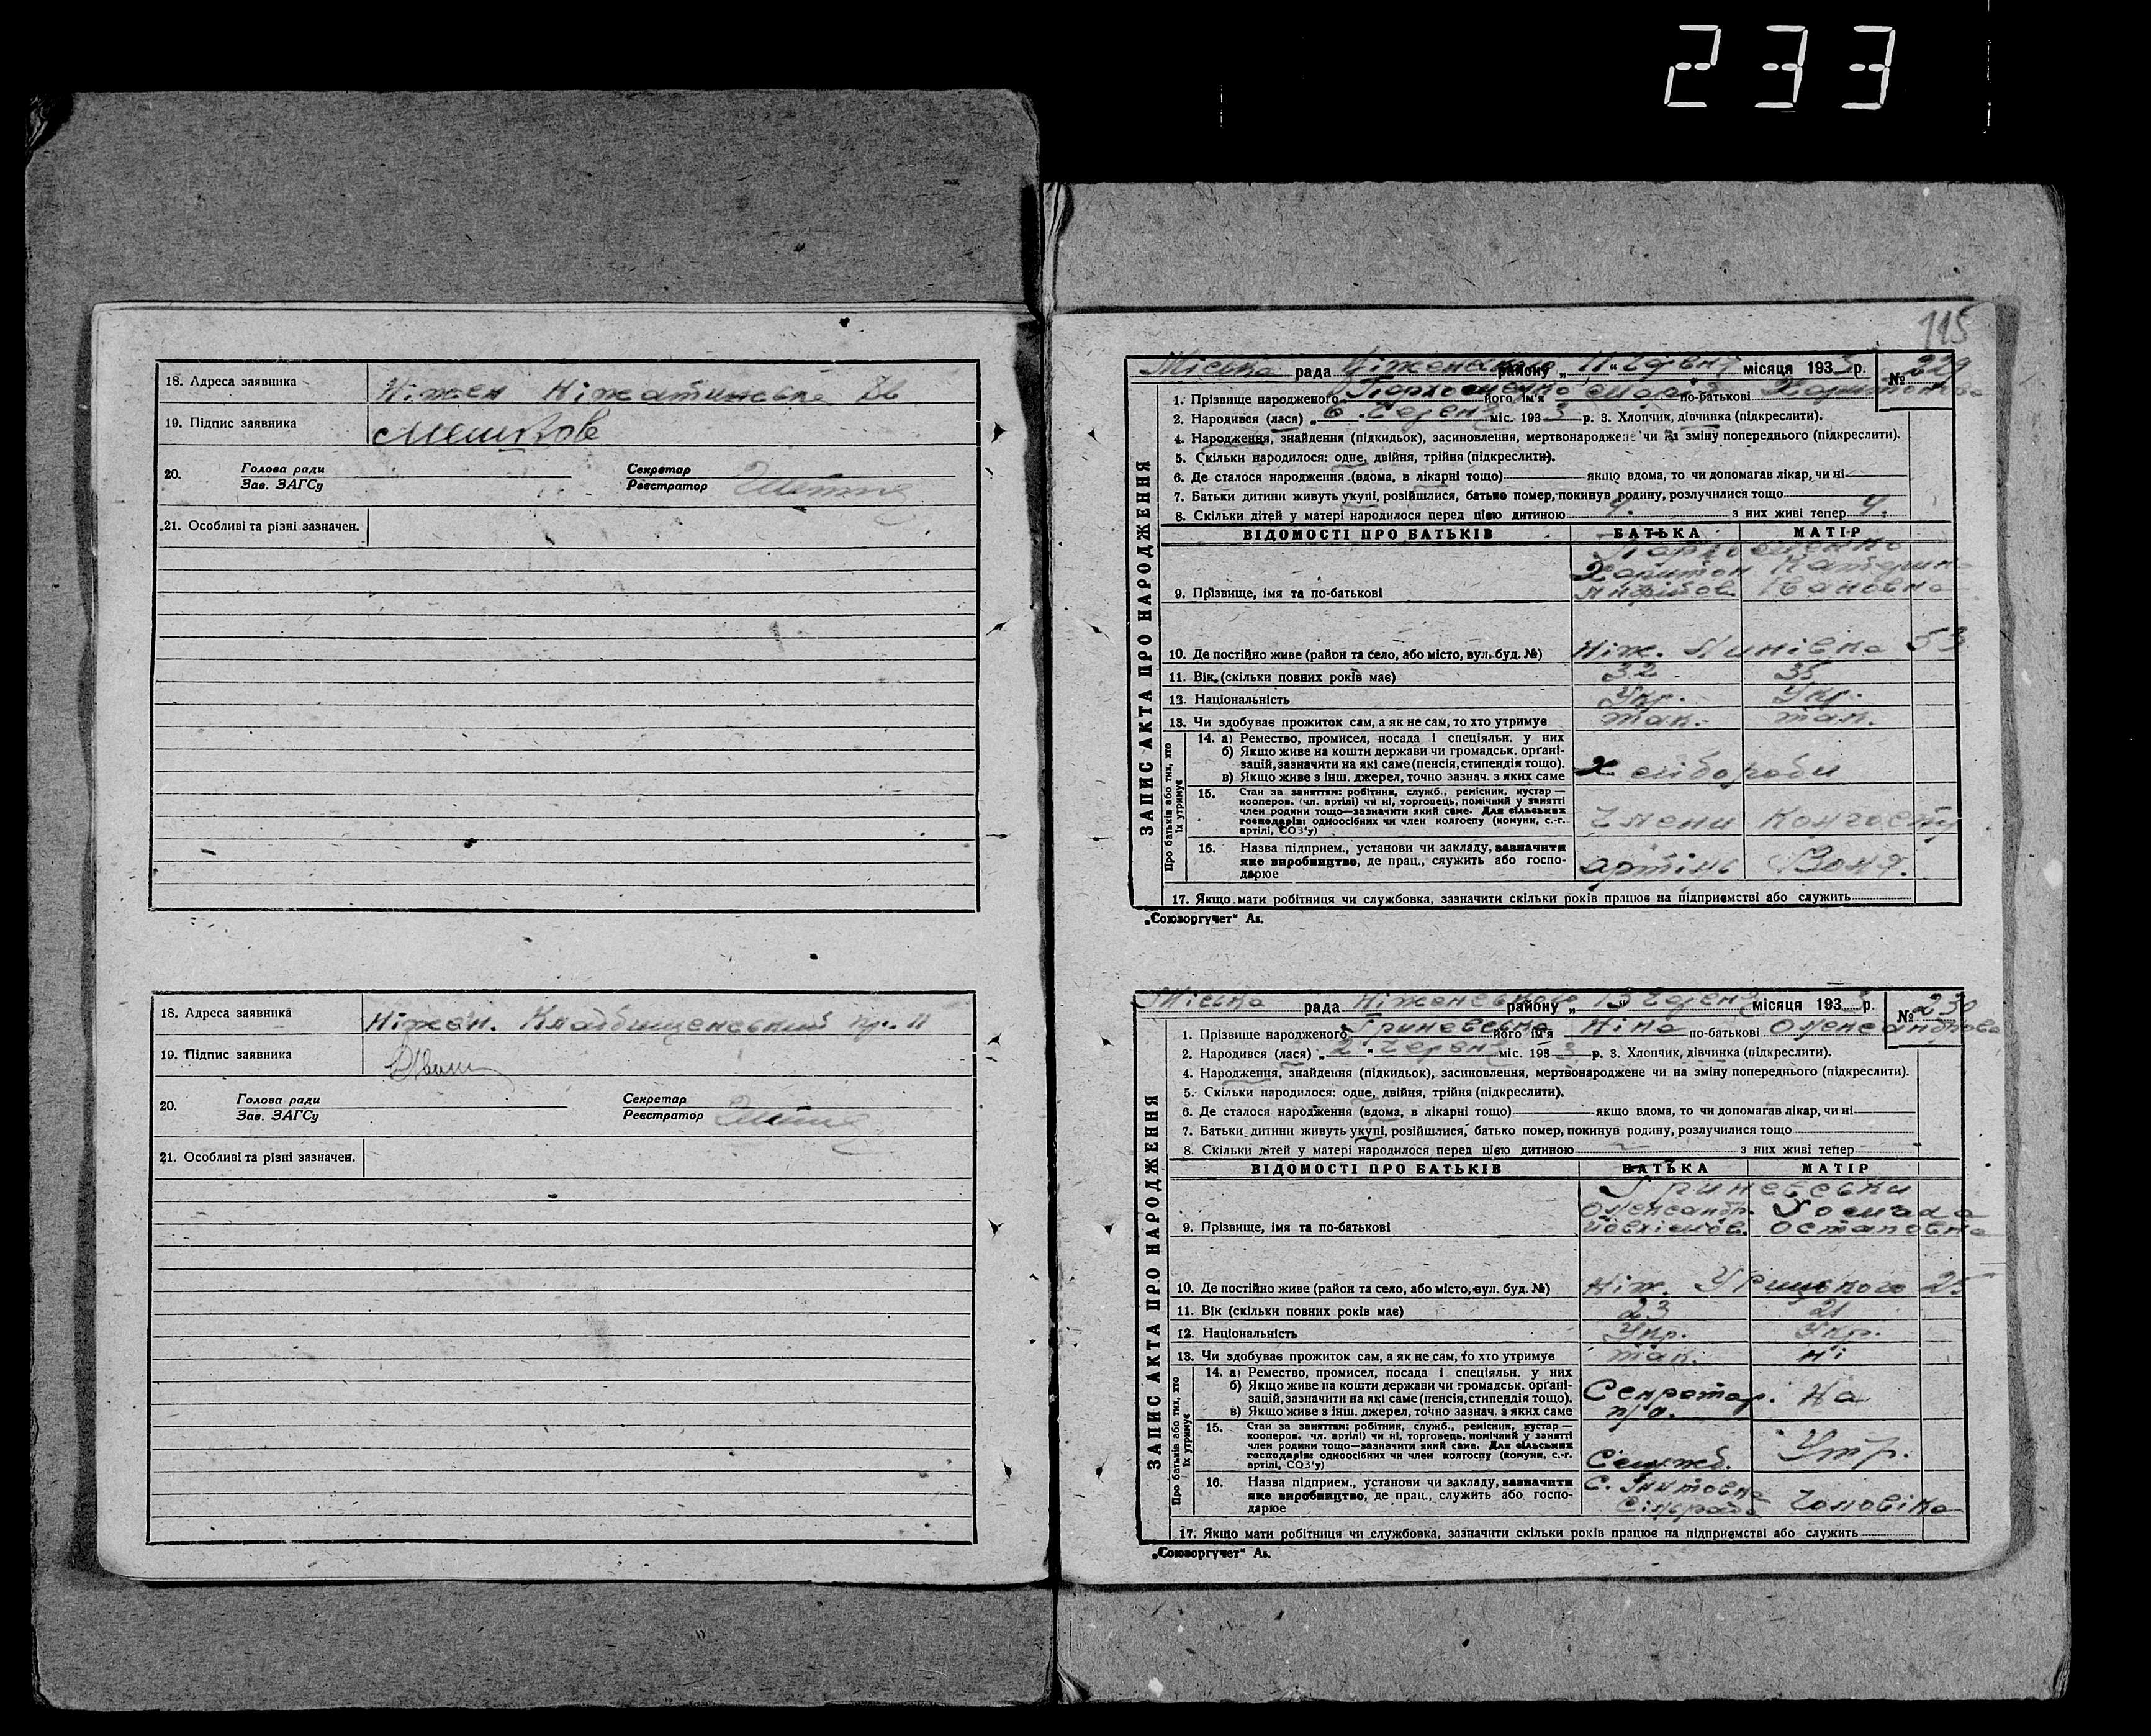 233
18. Адреса заявника Ніжен Ніжатинська
19. Підпис заявника
20. Голова ради Секретар
Зав. ЗАГСу Реєстратор
21. Особливі та різні зазначен.
18. Адреса заявника Ніжен. Кладбищенський пр. 11
19. Підпис заявника
20. Голова ради Секретар
Зав. ЗАГСу Реєстратор
21. Особливі та різні зазначен.
115
ЗАПИС АКТА ПРО НАРОДЖЕННЯ
Міська рада Ніженського району „11“ червня місяця 1933 р. № 229
1. Прізвище народженого Пархоменко його ім'я Марія по-батькові Харитонова
2. Народився (лася) „6“ червня міс. 1933 р. 3. Хлопчик, дівчинка (підкреслити).
4. Народження, знайдення (підкидьок), засиновлення, мертвонароджене чи на зміну попереднього (підкреслити).
5. Скільки народилося: одне, двійня, трійня (підкреслити).
6. Де сталося народження (вдома, в лікарні тощо) якщо вдома, то чи допомагав лікар, чи ні
7. Батьки дитини живуть укупі, розійшлися, батько помер, покинув родину, розлучилися тощо
8. Скільки дітей у матері народилося перед цією дитиною 4. з них живі тепер 4.
ВІДОМОСТІ ПРО БАТЬКІВ БАТЬКА МАТІР
Пархоменко
Харитон Катерина
9. Прізвище, імя та по-батькові Івановна
10. Де постійно живе (район та село, або місто, вул. буд. №) Ніж. Синівка 53
11. Вік (скільки повних років має) 32 35
12. Національність Укр. Укр.
13. Чи здобуває прожиток сам, а як не сам, то хто утримує так. так.
Про батьків або тих, хто їх утримує
14. а) Ремество, промисел, посада і спеціяльн. у них
б) Якщо живе на кошти держави чи громадськ. органі-
зацій, зазначити на які саме (пенсія, стипендія тощо).
в) Якщо живе з інш. джерел, точно зазнач. з яких саме хлібороби
15. Стан за заняттям: робітник, служб., ремісник, кустар —
кооперов. (чл. артілі) чи ні, торговець, помічний у занятті
член родини тощо—зазначити який саме. Для сільських
господарів: одноосібних чи член колгоспу (комуни, с.-г.
артілі, СОЗ'у) Члени Колгоспу
16. Назва підприєм., установи чи закладу, зазначити
яке виробництво, де прац., служить або госпо-
дарює артіль
17. Якщо мати робітниця чи службовка, зазначити скільки років працює на підприємстві або служить
„Союзоргучет“ Аs.
ЗАПИС АКТА ПРО НАРОДЖЕННЯ
Міська рада Ніженського району „13“ червня місяця 193 р. № 230
1. Прізвище народженого Гриневська його ім'я Ніна по-батькові Олександрова
2. Народився (лася) „2“ червня міс. 1933 р. 3. Хлопчик, дівчинка (підкреслити).
4. Народження, знайдення (підкидьок), засиновлення, мертвонароджене чи на зміну попереднього (підкреслити).
5. Скільки народилося: одне, двійня, трійня (підкреслити).
6. Де сталося народження (вдома, в лікарні тощо) якщо вдома, то чи допомагав лікар, чи ні
7. Батьки дитини живуть укупі, розійшлися, батько помер, покинув родину, розлучилися тощо
8. Скільки дітей у матері народилося перед цією дитиною з них живі тепер
ВІДОМОСТІ ПРО БАТЬКІВ БАТЬКА МАТІР
Гриневськи
Олександр.
9. Прізвище, імя та по-батькові Остаповна
10. Де постійно живе (район та село, або місто, вул. буд. №) Ніж. Урицького 25
11. Вік (скільки повних років має) 23 21
12. Національність Укр. Укр.
13. Чи здобуває прожиток сам, а як не сам, то хто утримує так. ні
Про батьків або тих, хто їх утримує
14. а) Ремество, промисел, посада і спеціяльн. у них
б) Якщо живе на кошти держави чи громадськ. органі-
зацій, зазначити на які саме (пенсія, стипендія тощо). Секретар. На
в) Якщо живе з інш. джерел, точно зазнач. з яких саме
15. Стан за заняттям: робітник, служб., ремісник, кустар —
кооперов. чл. артілі) чи ні, торговець, помічний у занятті
член родини тощо—зазначити який саме. Для сільських
господарів: одноосібних чи член колгоспу (комуни, с.-г.
артілі, СОЗ'у) Служб. Утр.
16. Назва підприєм., установи чи закладу, зазначити
яке виробництво, де прац., служить або госпо-
дарює Сільрада Чоловіка
17. Якщо мати робітниця чи службовка, зазначити скільки років працює на підприємстві або служить
„Союзоргучет“ Аs.